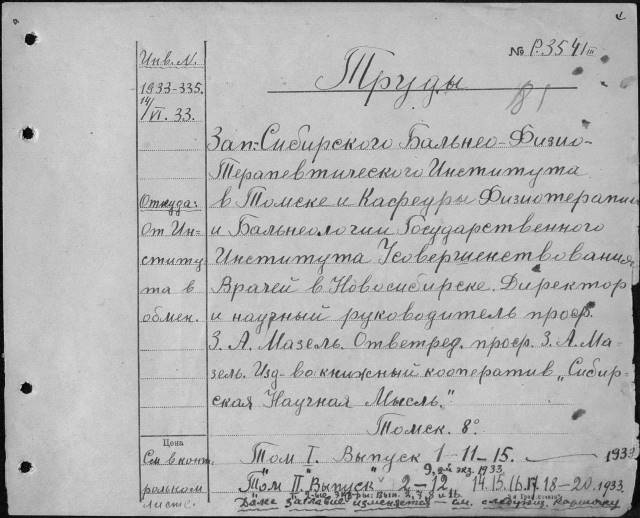 № P.3541 III
Инв. N.
Труды
81
1933-335.
14/VI. 33.
Зап.-Сибирского Бальнео-Физио-
Терапевтического Института
Откуда:
в Томске и Кафедры Физиотерапии
От Ин-
и Бальнеологии Государственного
ститу-
Института Усовершенствования
та в
Врачей в Новосибирске. Директор
обмен.
и научный руководитель проф.
З. А. Мазель. Ответред. проф. З. А. Ма-
зель. Изд-во книжный кооператив „Сибир-
ская Научная Мысль."
Томск. 8°
Цена
См в конт
Том I. Выпуск 1-11-15. 1933
9, 2й экз. 1933
рольном
Том II. Выпуск 2-12 14.15.16.17.18-20. 1933
листе.
Далее заглавие изменяется - см. следующ. карточку